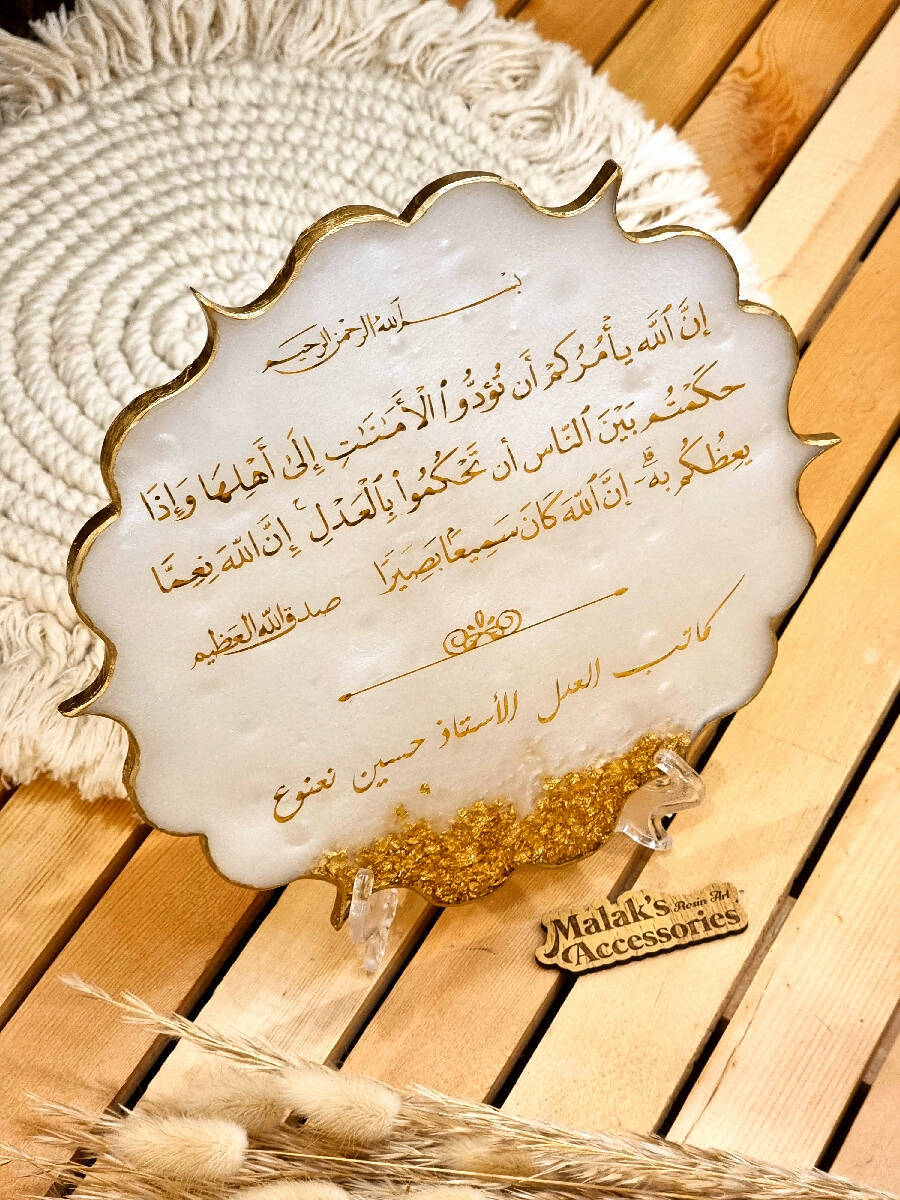 بسم الله الرحمن الرحيم
إِنَّ ٱللَّهَ يَأْمُرُكُمْ أَن تُؤَدُّوا۟ ٱلْأَمَـٰنَـٰتِ إِلَىٰٓ أَهْلِهَا وَإِذَا
حَكَمْتُم بَيْنَ ٱلنَّاسِ أَن تَحْكُمُوا۟ بِٱلْعَدْلِ ۚ إِنَّ ٱللَّهَ نِعِمَّا
يَعِظُكُم بِهِۦٓ ۗ إِنَّ ٱللَّهَ كَانَ سَمِيعًۢا بَصِيرًا صدق الله العظيم
كاتب العدل الأستاذ حسين نعنوع
Malak's Resin Art
Accessories